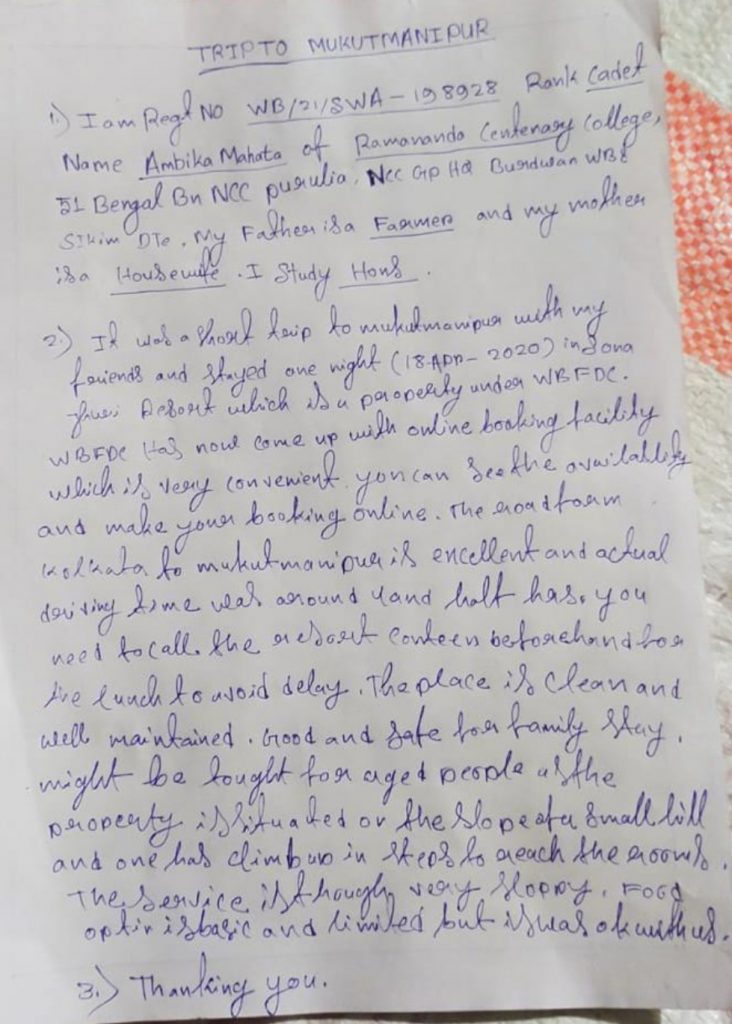 TRIP TO MUKUTMANIPUR
1.) I am Regt No WB/21/SWA-198928 Rank Cadet
Name Ambika Mahata of Ramananda Centenary College,
51 Bengal Bn NCC purulia, NCC Gp HQ Burdwan WB &
Sikim DTe, My Father is a Farmer and my mother
is a Housewife. I Study Hons.
2.) It was a short trip to mukutmanipur with my
friends and stayed one night (18-APR-2020) in Sona
Jhuri Resort which is a property under WBFDC.
WBFDC Has now come up with online booking facility
which is very convenient. you can see the availablity
and make your booking online. The road form
Kolkata to mukutmanipur is encellent and actual
driving time was around 4 and half hrs. you
need to call the resort conteen beforehand for
the lunch to avoid delay. The place is clean and
well maintained. Good and safe for family stay.
might be tought for aged people as the
property is situated or the slope of a small hill
and one has climb up in steps to reach the rooms.
The service is though very sloppy. Food
optin is basic and limited but is was ok with us.
3.) Thanking you.